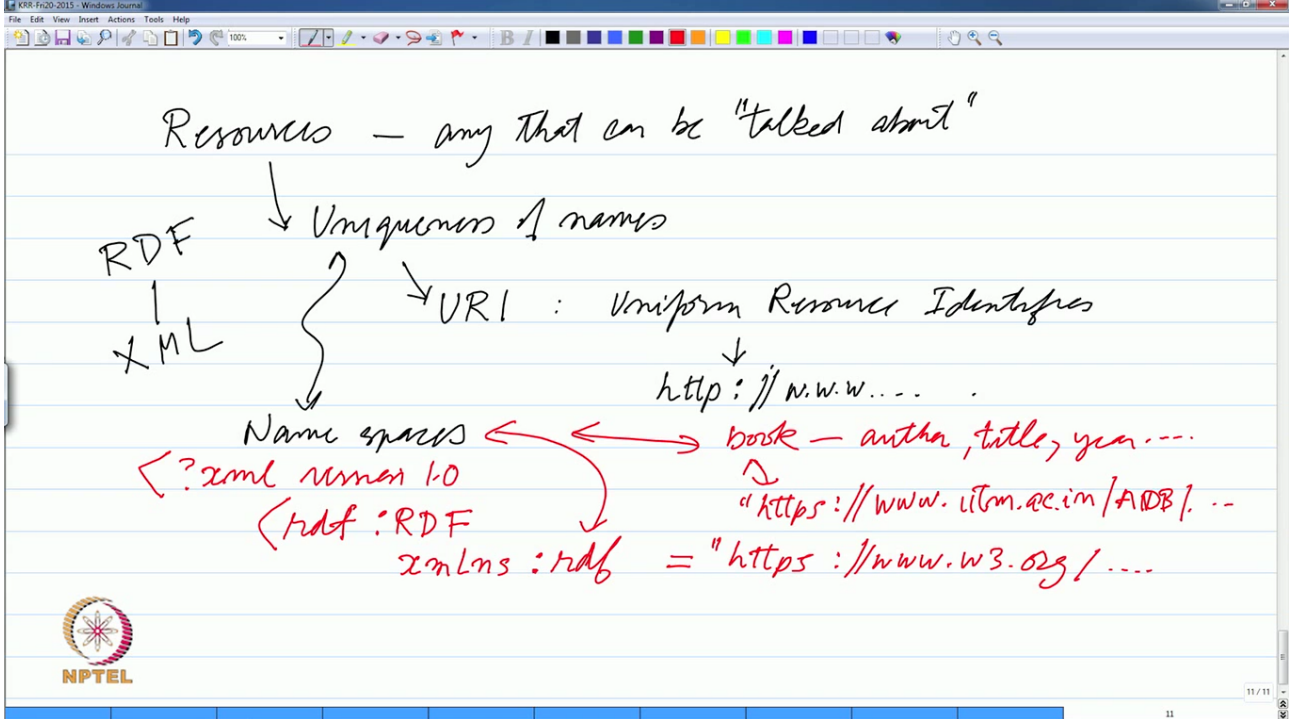 KRR-Fri20-2015 - Windows Journal
File Edit View Insert Actions Tools Help
100%
B I
Resources — any that can be "talked about"
Uniqueness of names
RDF
XML
URI : Uniform Resource Identifies
http://w.w.w....
Name spaces
book — author, title, year....
<?xml version 1.0
"https://www.iitm.ac.in/ADB/...
<rdf:RDF
xmlns:rdf = "https://www.w3.org/....
NPTEL
11 / 11
11